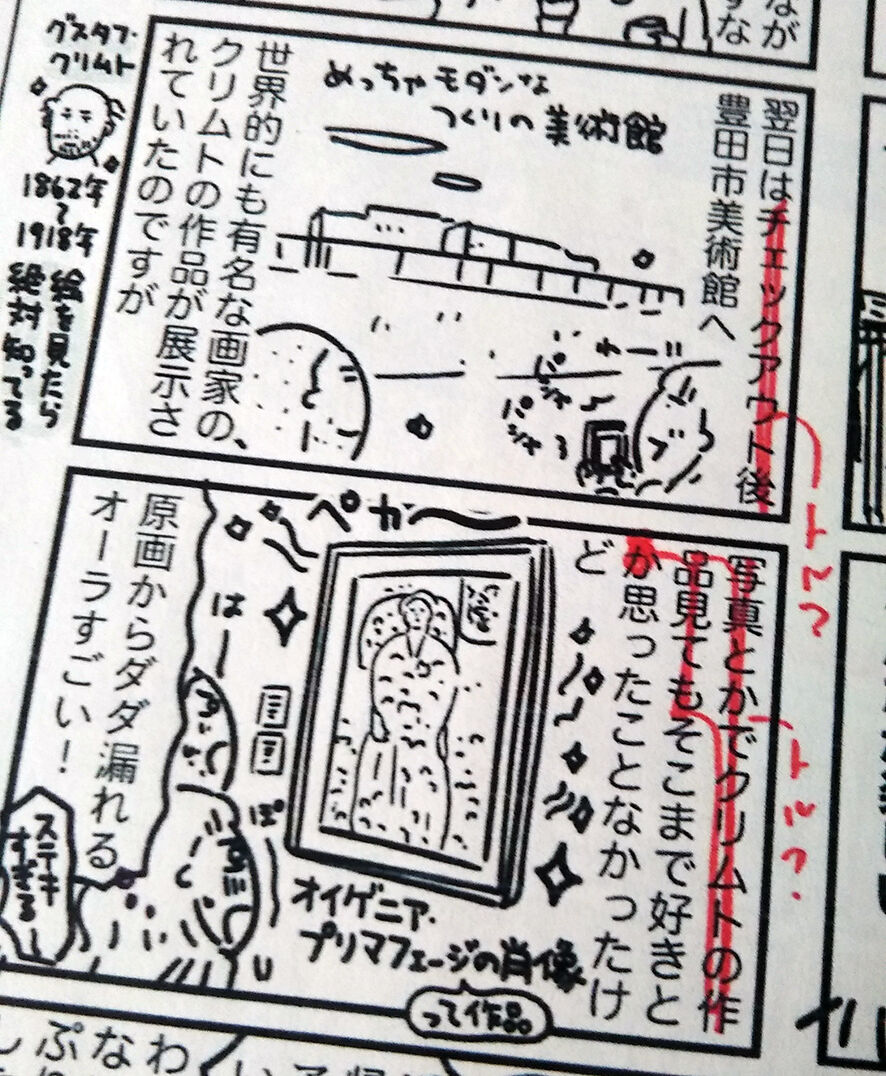 なが
すな
翌日はチェックアウト後
豊田市美術館へ
めっちゃモダンな
つくりの美術館
わーじー
パシャ
パシャ
世界的にも有名な画家の、
クリムトの作品が展示さ
れていたのですが
グスタフ・
クリムト
1862年
〜
1918年
絵を見たら
絶対知ってる
トル?
写真とかでクリムトの作
品見てもそこまで好きと
か思ったことなかったけ
ど
トル?
ペカー
はー
ぽー
オイゲニア・
プリマフェージの肖像
って作品
原画からダダ漏れる
オーラすごい!
ステキ
すぎるー
わ
な
ぷ
し